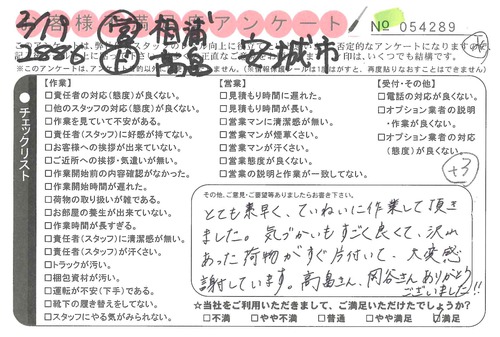 3/19
お客様ご満足アンケート
相浦
安城市
No 054289
高畠
チェックリスト
【作業】
□責任者の対応(態度)が良くない。
□他のスタッフの対応(態度)が良くない。
□作業を見ていて不安がある。
□責任者(スタッフ)に好感が持てない。
□お客様への挨拶が出来ていない。
□ご近所への挨拶・気遣いが無い。
□作業開始前の内容確認がなかった。
□作業開始時間が遅れた。
□荷物の取り扱いが雑である。
□お部屋の養生が出来ていない。
□作業時間が長すぎる。
□責任者(スタッフ)に清潔感が無い。
□責任者(スタッフ)が汗くさい。
□トラックが汚い。
□梱包資材が汚い。
□運転が不安(下手)である。
□靴下の履き替えをしてない。
□スタッフにやる気がみられない。
【営業】
□見積もり時間に遅れた。
□見積もり時間が長い。
□営業マンに清潔感が無い。
□営業マンが煙草くさい。
□営業マンが汗くさい。
□営業態度が良くない。
□営業の説明と作業が一致してない。
【受付・その他】
□電話の対応が良くない。
□オプション業者の説明
・作業が良くない。
□オプション業者の対応
(態度)が良くない。
+3
その他、ご意見・ご要望等ありましたらお書き下さい。
とても素早く、ていねいに作業して頂き
ました。気づかいもすごく良くて、沢山
あった荷物がすぐ片付いて、大変感
謝しています。高畠さん、岡谷さんありがとう
ございました!!
☆当社をご利用いただきまして、ご満足いただけたでしょうか?
□不満 □やや不満 □普通 □やや満足 ☑満足